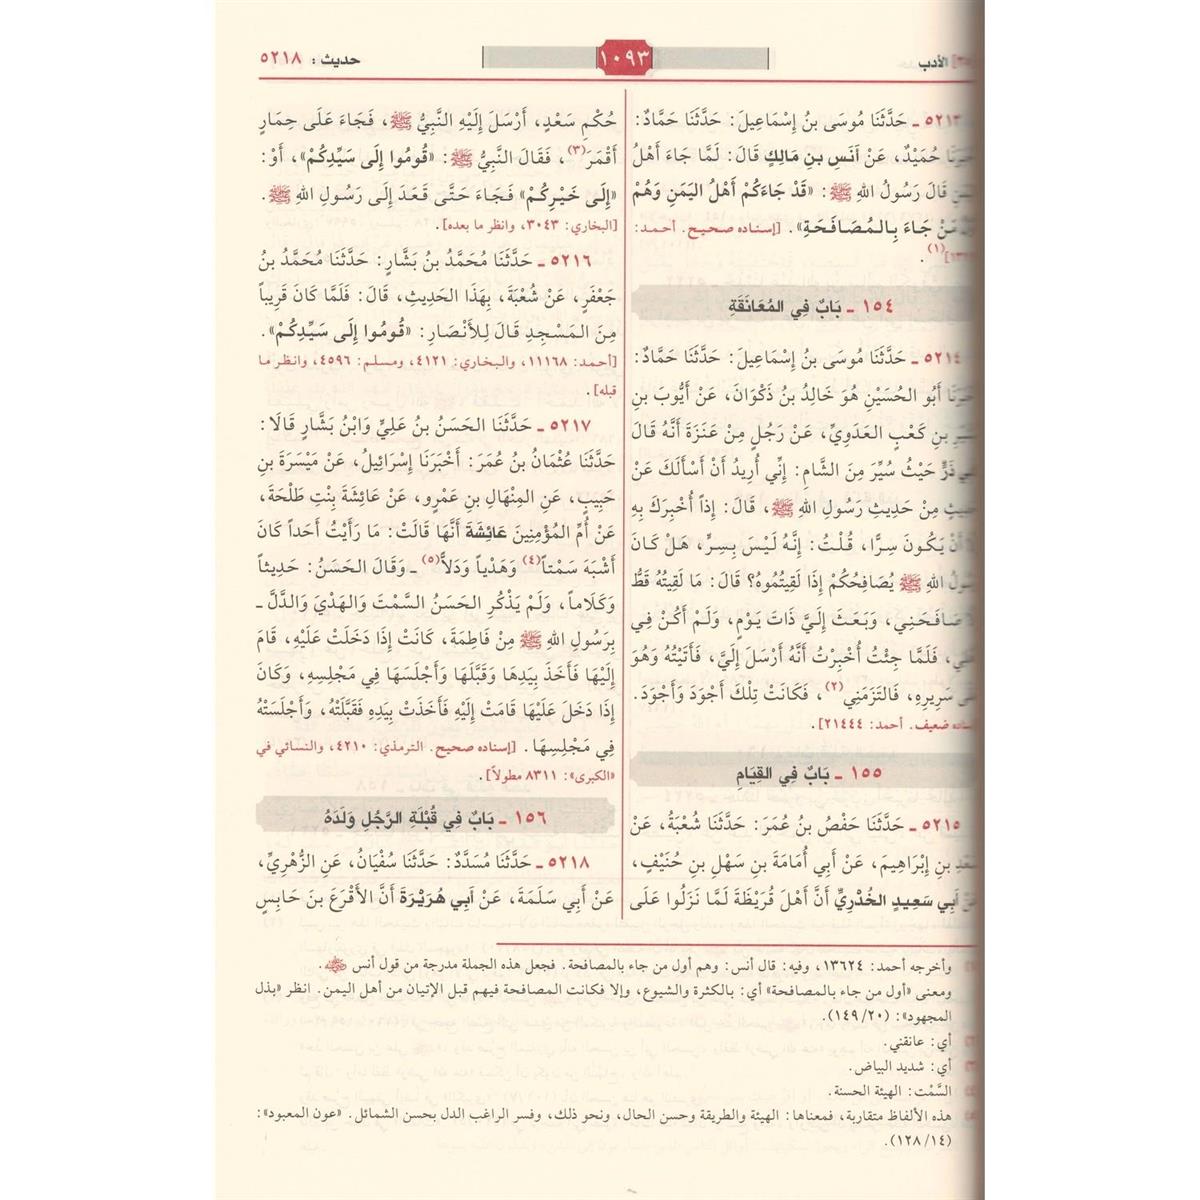 الأدب
١٠٩٣
حديث : ٥٢١٨
٥٢١٣ ـ حَدَّثَنَا مُوسَى بنُ إِسْمَاعِيلَ: حَدَّثَنَا حَمَّادٌ:
حُمَيْدٌ، عَنْ أَنَسِ بنِ مَالِكٍ قَالَ: لَمَّا جَاءَ أَهْلُ
قَالَ رَسُولُ اللهِ ﷺ: «قَدْ جَاءَكُمْ أَهْلُ اليَمَنِ وَهُمْ
مَنْ جَاءَ بِالمُصَافَحَةِ». [إسناده صحيح. أحمد:
(١).
١٥٤ ـ بَابٌ فِي المُعَانَقَةِ
٥٢١٤ ـ حَدَّثَنَا مُوسَى بنُ إِسْمَاعِيلَ: حَدَّثَنَا حَمَّادٌ:
أَبُو الحُسَيْنِ هُوَ خَالِدُ بنُ ذَكْوَانَ، عَنْ أَيُّوبَ بنِ
بنِ كَعْبٍ العَدَوِيِّ، عَنْ رَجُلٍ مِنْ عَنَزَةَ أَنَّهُ قَالَ
ذَرٍّ حَيْثُ سُيِّرَ مِنَ الشَّامِ: إِنِّي أُرِيدُ أَنْ أَسْأَلَكَ عَنْ
مِنْ حَدِيثِ رَسُولِ اللهِ ﷺ، قَالَ: إِذاً أُخْبِرَكَ بِهِ
أَنْ يَكُونَ سِرًّا، قُلْتُ: إِنَّهُ لَيْسَ بِسِرٍّ، هَلْ كَانَ
اللهِ ﷺ يُصَافِحُكُمْ إِذَا لَقِيتُمُوهُ؟ قَالَ: مَا لَقِيتُهُ قَطُّ
صَافَحَنِي، وَبَعَثَ إِلَيَّ ذَاتَ يَوْمٍ، وَلَمْ أَكُنْ فِي
فَلَمَّا جِئْتُ أُخْبِرْتُ أَنَّهُ أَرْسَلَ إِلَيَّ، فَأَتَيْتُهُ وَهُوَ
سَرِيرِهِ، فَالتَزَمَنِي(٢)، فَكَانَتْ تِلْكَ أَجْوَدَ وَأَجْوَدَ.
ضعيف. أحمد: ٢١٤٤٤].
١٥٥ ـ بَابٌ فِي القِيَامِ
٥٢١٥ ـ حَدَّثَنَا حَفْصُ بنُ عُمَرَ: حَدَّثَنَا شُعْبَةُ، عَنْ
بنِ إِبْرَاهِيمَ، عَنْ أَبِي أُمَامَةَ بنِ سَهْلِ بنِ حُنَيْفٍ،
أَبِي سَعِيدٍ الخُدْرِيِّ أَنَّ أَهْلَ قُرَيْظَةَ لَمَّا نَزَلُوا عَلَى
حُكْمِ سَعْدٍ، أَرْسَلَ إِلَيْهِ النَّبِيُّ ﷺ، فَجَاءَ عَلَى حِمَارٍ
أَقْمَرَ(٣)، فَقَالَ النَّبِيُّ ﷺ: «قُومُوا إِلَى سَيِّدِكُمْ»، أَوْ:
«إِلَى خَيْرِكُمْ» فَجَاءَ حَتَّى قَعَدَ إِلَى رَسُولِ اللهِ ﷺ.
[البخاري: ٣٠٤٣، وانظر ما بعده].
٥٢١٦ ـ حَدَّثَنَا مُحَمَّدُ بنُ بَشَّارٍ: حَدَّثَنَا مُحَمَّدُ بنُ
جَعْفَرٍ، عَنْ شُعْبَةَ، بِهَذَا الحَدِيثِ، قَالَ: فَلَمَّا كَانَ قَرِيباً
مِنَ المَسْجِدِ قَالَ لِلأَنْصَارِ: «قُومُوا إِلَى سَيِّدِكُمْ».
[أحمد: ١١١٦٨، والبخاري: ٤١٢١، ومسلم: ٤٥٩٦، وانظر ما
قبله].
٥٢١٧ ـ حَدَّثَنَا الحَسَنُ بنُ عَلِيٍّ وَابْنُ بَشَّارٍ قَالَا:
حَدَّثَنَا عُثْمَانُ بنُ عُمَرَ: أَخْبَرَنَا إِسْرَائِيلُ، عَنْ مَيْسَرَةَ بنِ
حَبِيبٍ، عَنِ المِنْهَالِ بنِ عَمْرٍو، عَنْ عَائِشَةَ بِنْتِ طَلْحَةَ،
عَنْ أُمِّ المُؤْمِنِينَ عَائِشَةَ أَنَّهَا قَالَتْ: مَا رَأَيْتُ أَحَداً كَانَ
أَشْبَهَ سَمْتاً(٤) وَهَدْياً وَدَلًّا(٥) ـ وَقَالَ الحَسَنُ: حَدِيثاً
وَكَلَاماً، وَلَمْ يَذْكُرِ الحَسَنُ السَّمْتَ وَالهَدْيَ وَالدَّلَّ ـ
بِرَسُولِ اللهِ ﷺ مِنْ فَاطِمَةَ، كَانَتْ إِذَا دَخَلَتْ عَلَيْهِ، قَامَ
إِلَيْهَا فَأَخَذَ بِيَدِهَا وَقَبَّلَهَا وَأَجْلَسَهَا فِي مَجْلِسِهِ، وَكَانَ
إِذَا دَخَلَ عَلَيْهَا قَامَتْ إِلَيْهِ فَأَخَذَتْ بِيَدِهِ فَقَبَّلَتْهُ، وَأَجْلَسَتْهُ
فِي مَجْلِسِهَا. [إسناده صحيح. الترمذي: ٤٢١٠، والنسائي في
«الكبرى»: ٨٣١١ مطولاً].
١٥٦ ـ بَابٌ فِي قُبْلَةِ الرَّجُلِ وَلَدَهُ
٥٢١٨ ـ حَدَّثَنَا مُسَدَّدٌ: حَدَّثَنَا سُفْيَانُ، عَنِ الزُّهْرِيِّ،
عَنْ أَبِي سَلَمَةَ، عَنْ أَبِي هُرَيْرَةَ أَنَّ الأَقْرَعَ بنَ حَابِسٍ
وأخرجه أحمد: ١٣٦٢٤، وفيه: قال أنس: وهم أول من جاء بالمصافحة. فجعل هذه الجملة مدرجة من قول أنس ﷺ.
ومعنى «أول من جاء بالمصافحة» أي: بالكثرة والشيوع، وإلا فكانت المصافحة فيهم قبل الإتيان من أهل اليمن. انظر «بذل
المجهود»: (٢٠/١٤٩).
أي: عانقني.
أي: شديد البياض.
السَّمْت: الهيئة الحسنة.
هذه الألفاظ متقاربة، فمعناها: الهيئة والطريقة وحسن الحال، ونحو ذلك، وفسر الراغب الدل بحسن الشمائل. «عون المعبود»:
(١٤/١٢٨).